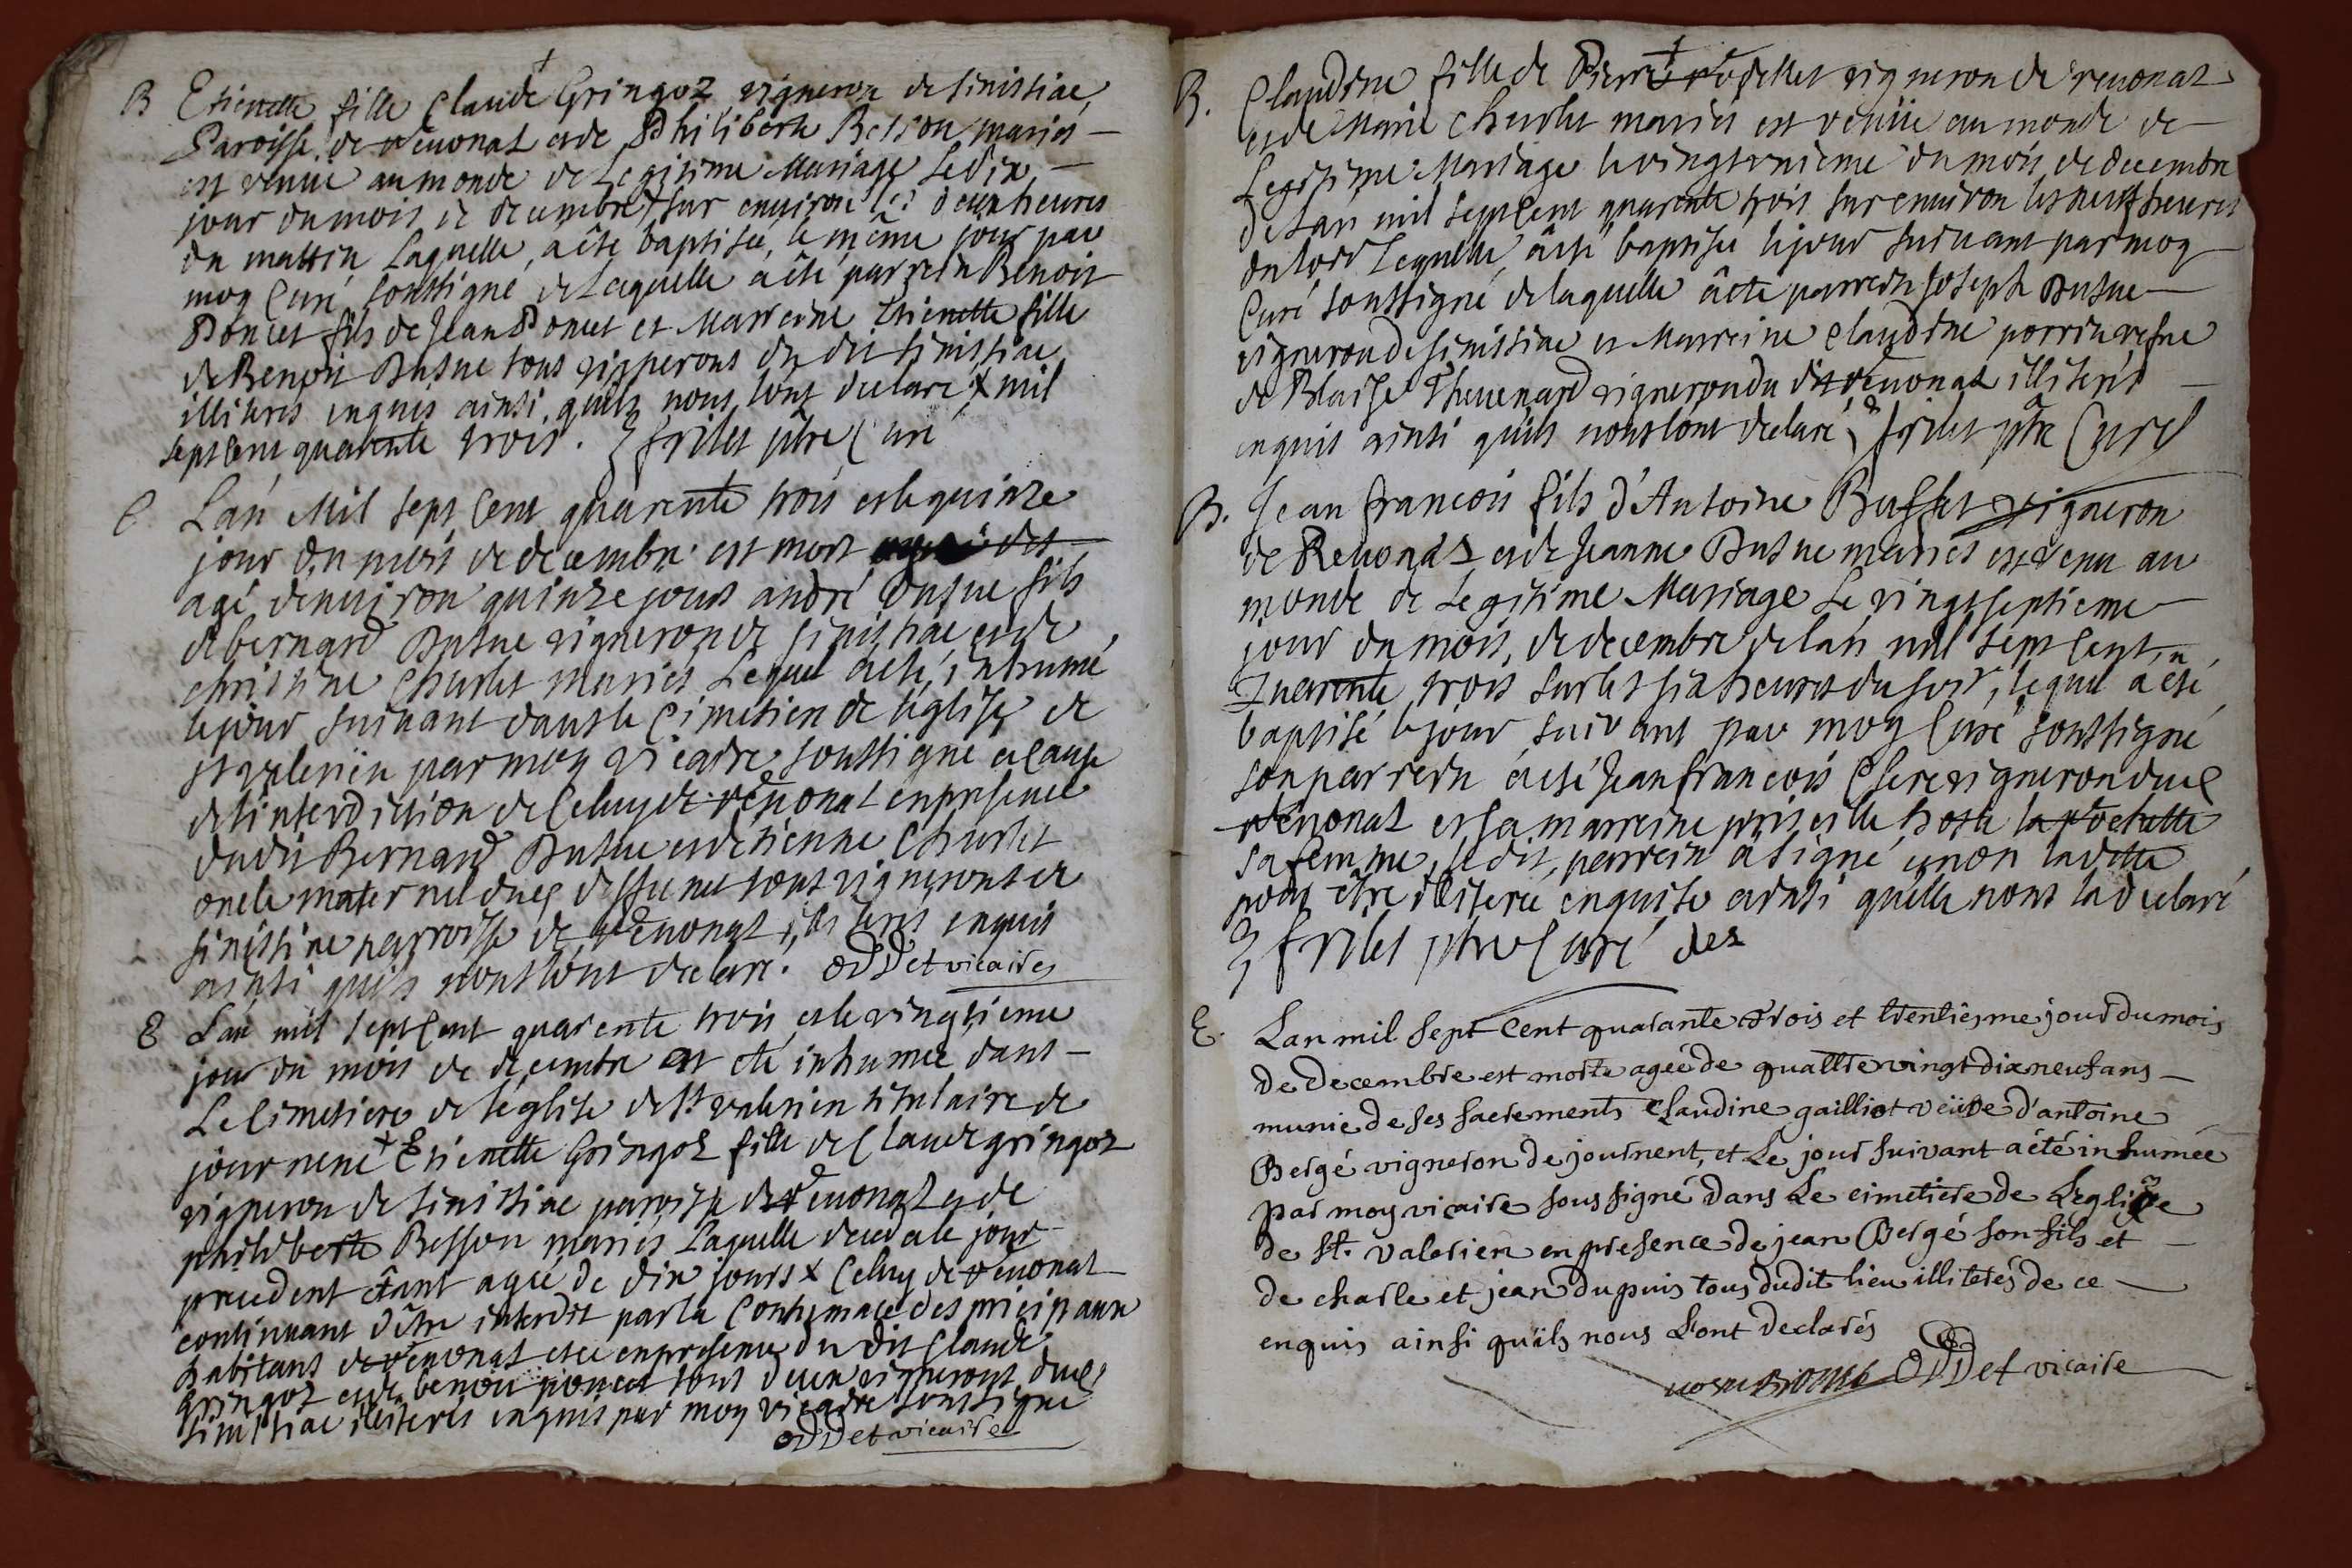 B Etienette fille Claude Gringoz vigneron de Sinissiac
Paroisse de revonat et de Philiberte Besson mariés
est venue au monde de Legitime Mariage Le dix
jour du mois de decembre sur environ les deux heures
du mattin Laquelle a été baptisée le même jour par
moy Curé soussigné de Laquelle a été parrein Benoit
Poncet fils de Jean Poncet et Marreine Etienette fille
de Benoit Dusue tous vignerons du dit Sinissiac
illiterés enquis ainsi quils nous lont declaré x mil
sept Cent quarente trois. frilet ptre Curé
E Lan Mil sept Cent quarente trois et le quinze
jour du mois de decembre est mort
agé denviron quinze jours andré Dusue fils
de bernard Dusue vigneron de sinissiac et de
christine Churlet mariés Lequel a été inhumé
le jour suivant dans le Cimetiere de léglise de
st valerien par moy vicaire soussigné a cause
de linterdiction de Celuy de revonat en presence
dudit Bernard Dusue et detienne Churlet
oncle maternel dud deffunct tous vignerons de
sinissiac parroisse de revonat illiterés enquis
ainsi quils nous lont declaré. ODDet vicaire
E Lan mil sept Cent quarente trois et le vingtieme
jour du mois de decembre est été inhumée dans
Le Cimetiere de leglise de St valerien titulaire de
journent Etienette Gringoz fille de Claude gringoz
vigneron de sinissiac paroisse de revonat et de
philiberte Besson mariés Laquelle deceda le jour
precedent étant agée de dix jours x Celuy de revonat
continuant dêtre interdit par la Contumace des pricipaux
habitans de revonat et ce en presence du dit Claude
Gringoz et de benoit poncet tous deux vignerons dud
sinissiac illiterés enquis par moy vicaire soussigné
ODDet vicaire
B. Claudine fille de Pierre rodellet vigneron de revonat
et de Marie Churlet mariés est venüe au monde de
Legitime Mariage le vingt unieme du mois de decembre
de Lan mil sept Cent quarente trois sur environ les neuf heures
du soir Lequelle a été baptisée le jour suivant par moy
Curé soussigné de laquelle a été parrein Joseph Dusue
vigneron de sinissiac et Marreine Claudine porrin vefue
de Blaise Thevenard vigneron du dit revonat illiterés
enquis ainsi quils nous lont declaré frilet ptre Curé
B. Jean francois fils d'Antoine Buffet vigneron
de Revonas et de Jeanne Dusue mariés est venu au
monde de Légitime Mariage Le vingt septieme
jour du mois de decembre de lan mil sept Cent
quarente trois sur les six heures du soir, lequel a été
baptisé le jour suivant par moy Curé soussigné
son parrein a été Jean francois Chere vigneron dud
revonat et sa marreine priscille hoste la rochette
sa femme, le dit parrein a signé et non ladite
pour être illiterée enquise ainsi quelle nous la declaré
frilet ptre Curé des
E. Lan mil Sept Cent quarante trois et trentiesme jour du mois
De Decembre est morte agée de quattre vingt dix neuf ans
munie de ses sacrements Claudine gailliot veüve d'antoine
Bergé vigneron de journent, et Le jour suivant a été inhumée
par moy vicaire soussigné dans Le cimetiere de Leglise
de st. valerien en presence de jean Bergé son fils et
de charle et jean dupuis tous dudit lieu illiterés de ce
enquis ainsi qu'ils nous L'ont declarés
ODDet vicaire